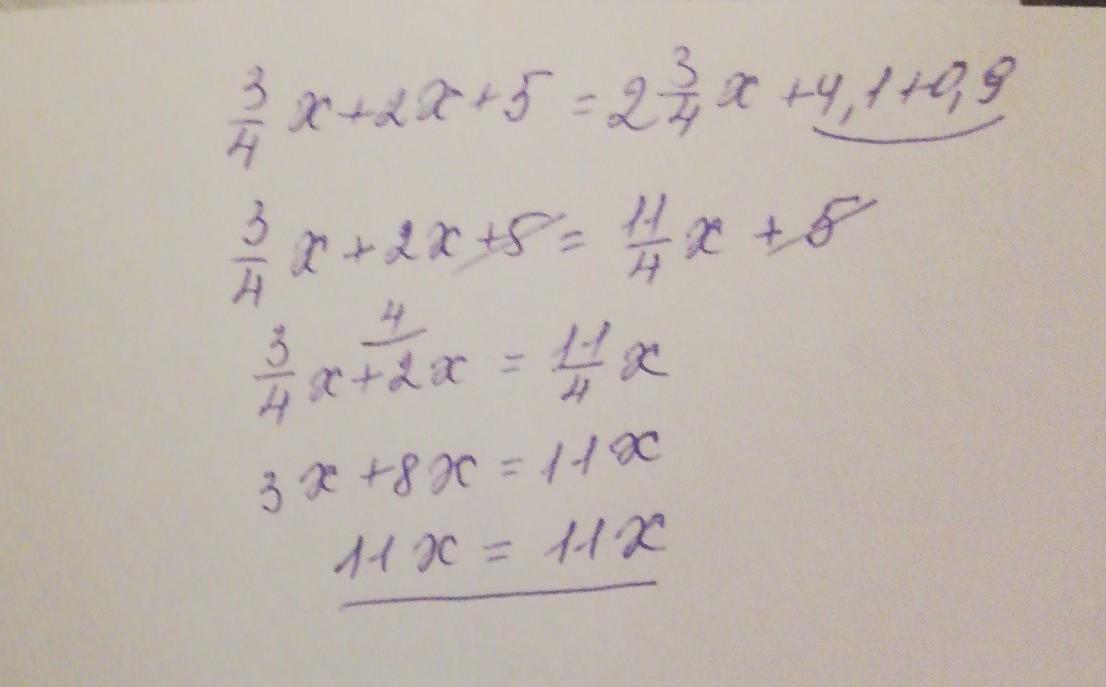 3/4 x + 2x + 5 = 2 3/4 x + 4,1 + 0,9
3/4 x + 2x + 5 = 11/4 x + 5
4
3/4 x + 2x = 11/4 x
3x + 8x = 11x
11x = 11x